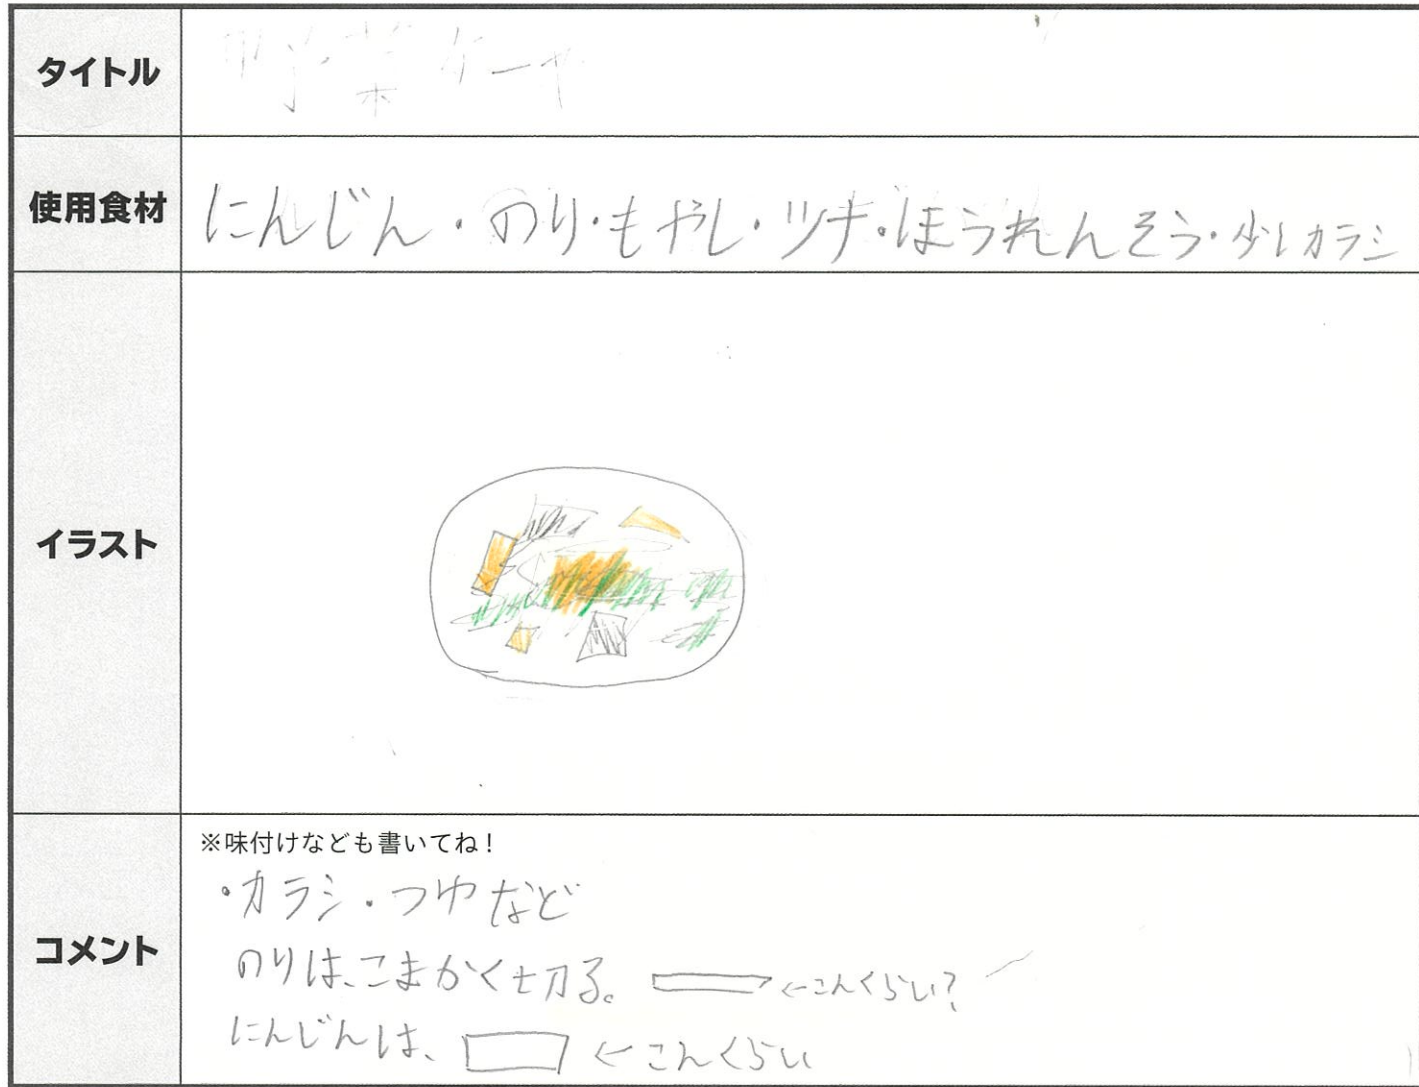 タイトル
使用食材
にんじん・のり・もやし・ツナ・ほうれんそう・少しカラシ
イラスト
コメント
※味付けなども書いてね！
・カラシ・つゆなど
のりは、こまかく切る。 ←こんくらい？
にんじんは、 ←こんくらい